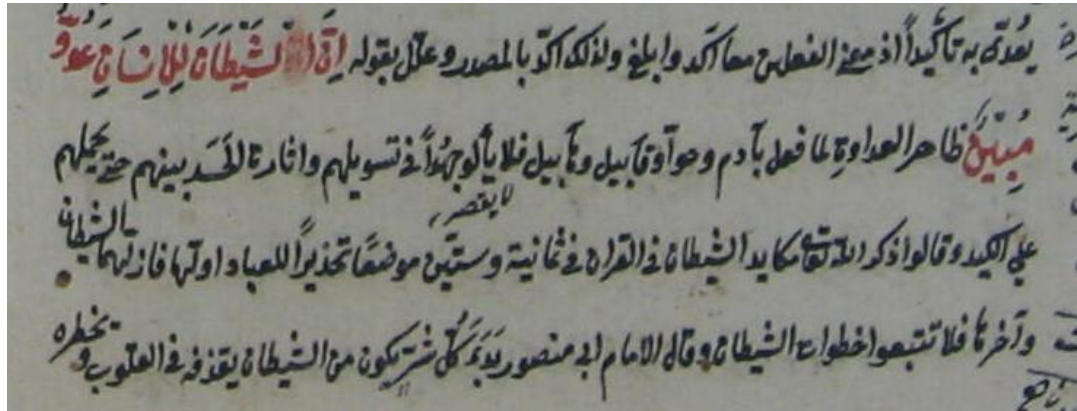 يعدّى به تأكيداً اذ معنى الفعلين معا آكد وابلغ ولذلك اكدّ بالمصدر وعلل بقوله اِنَّ الشَّيْطَانَ لِلْاِنْسَانِ عَدُوٌّ
مُبِينٌ ظاهر العداوة لما فعل بآدم وحوآ وقابيل وهابيل فلا يألو جهْداً فى تسويلهم واثارة الحَسد بينهم حتى يحملهم
لا يقصر
على الكيد وقالوا ذكر الله تعالى مكايد الشيطان فى القران فى ثمانية وستّين موضعًا تحذيراً للعباد اولها فازلهما الشيطان
وآخرها فلا تتبعوا خطوات الشيطان وقال الامام ابى منصور كل شر يكون من الشيطان يقذفه فى القلوب ويخطره